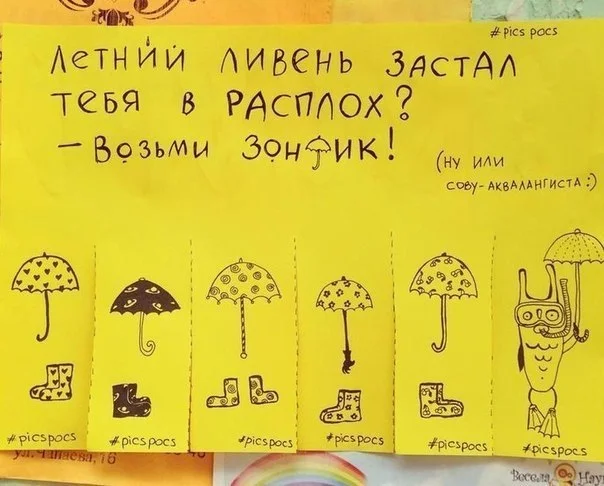 #pics pocs
ЛЕТНИЙ ЛИВЕНЬ ЗАСТАЛ
ТЕБЯ В РАСПЛОХ?
– ВОЗЬМИ ЗОНТИК!
(НУ ИЛИ
СОВУ-АКВАЛАНГИСТА:)
#picspocs
#picspocs
#picspocs
#picspocs
#picspocs
#picspocs
16
Весела Нау